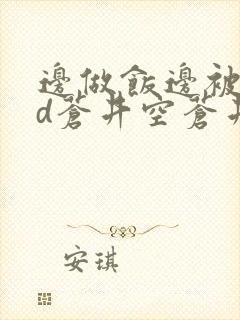 邊做飯邊被
d蒼井空蒼井
安琪